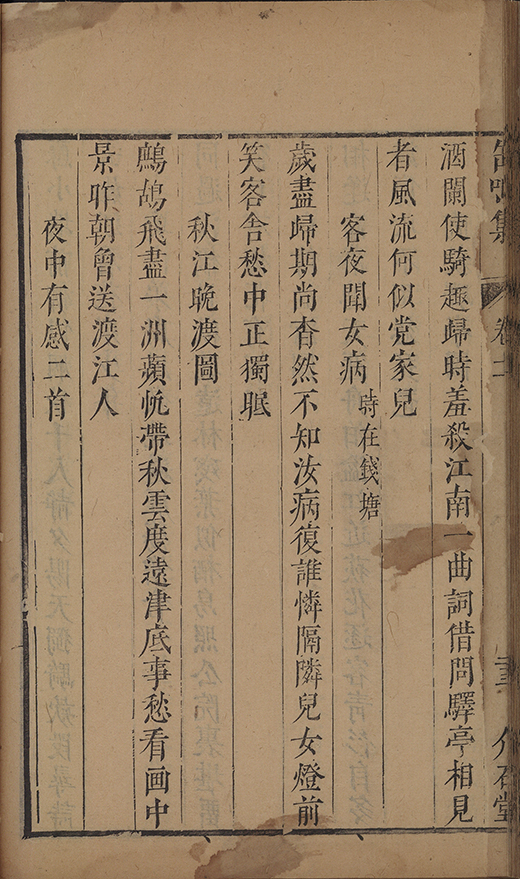 缶鳴集 卷二 介石堂
酒闌使騎趣歸時羞殺江南一曲詞借問驛亭相見
者風流何似党家兒
客夜聞女病 時在錢塘
歲盡歸期尚杳然不知汝病復誰憐隔隣兒女燈前
笑客舍愁中正獨眠
秋江晚渡圖
鷓鴣飛盡一洲蘋帆帶秋雲度遠津底事愁看画中
景昨朝曾送渡江人
夜中有感二首